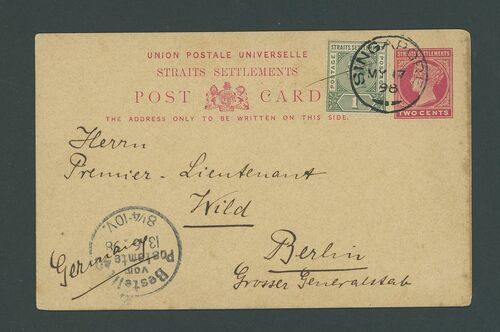 UNION POSTALE UNIVERSELLE
STRAITS SETTLEMENTS
POST CARD
THE ADDRESS ONLY TO BE WRITTEN ON THIS SIDE.
STRAITS SETTLEMENTS
POSTAGE
POSTAGE
1
SINGAPORE
MY 17
98
STRAITS SETTLEMENTS
TWO CENTS
Herrn
Premier-Lieutenant
Wild
Berlin
Grosser Generalstab
Germany
Bestellt
vom
Postamte
13/6 98
8¼-10V.